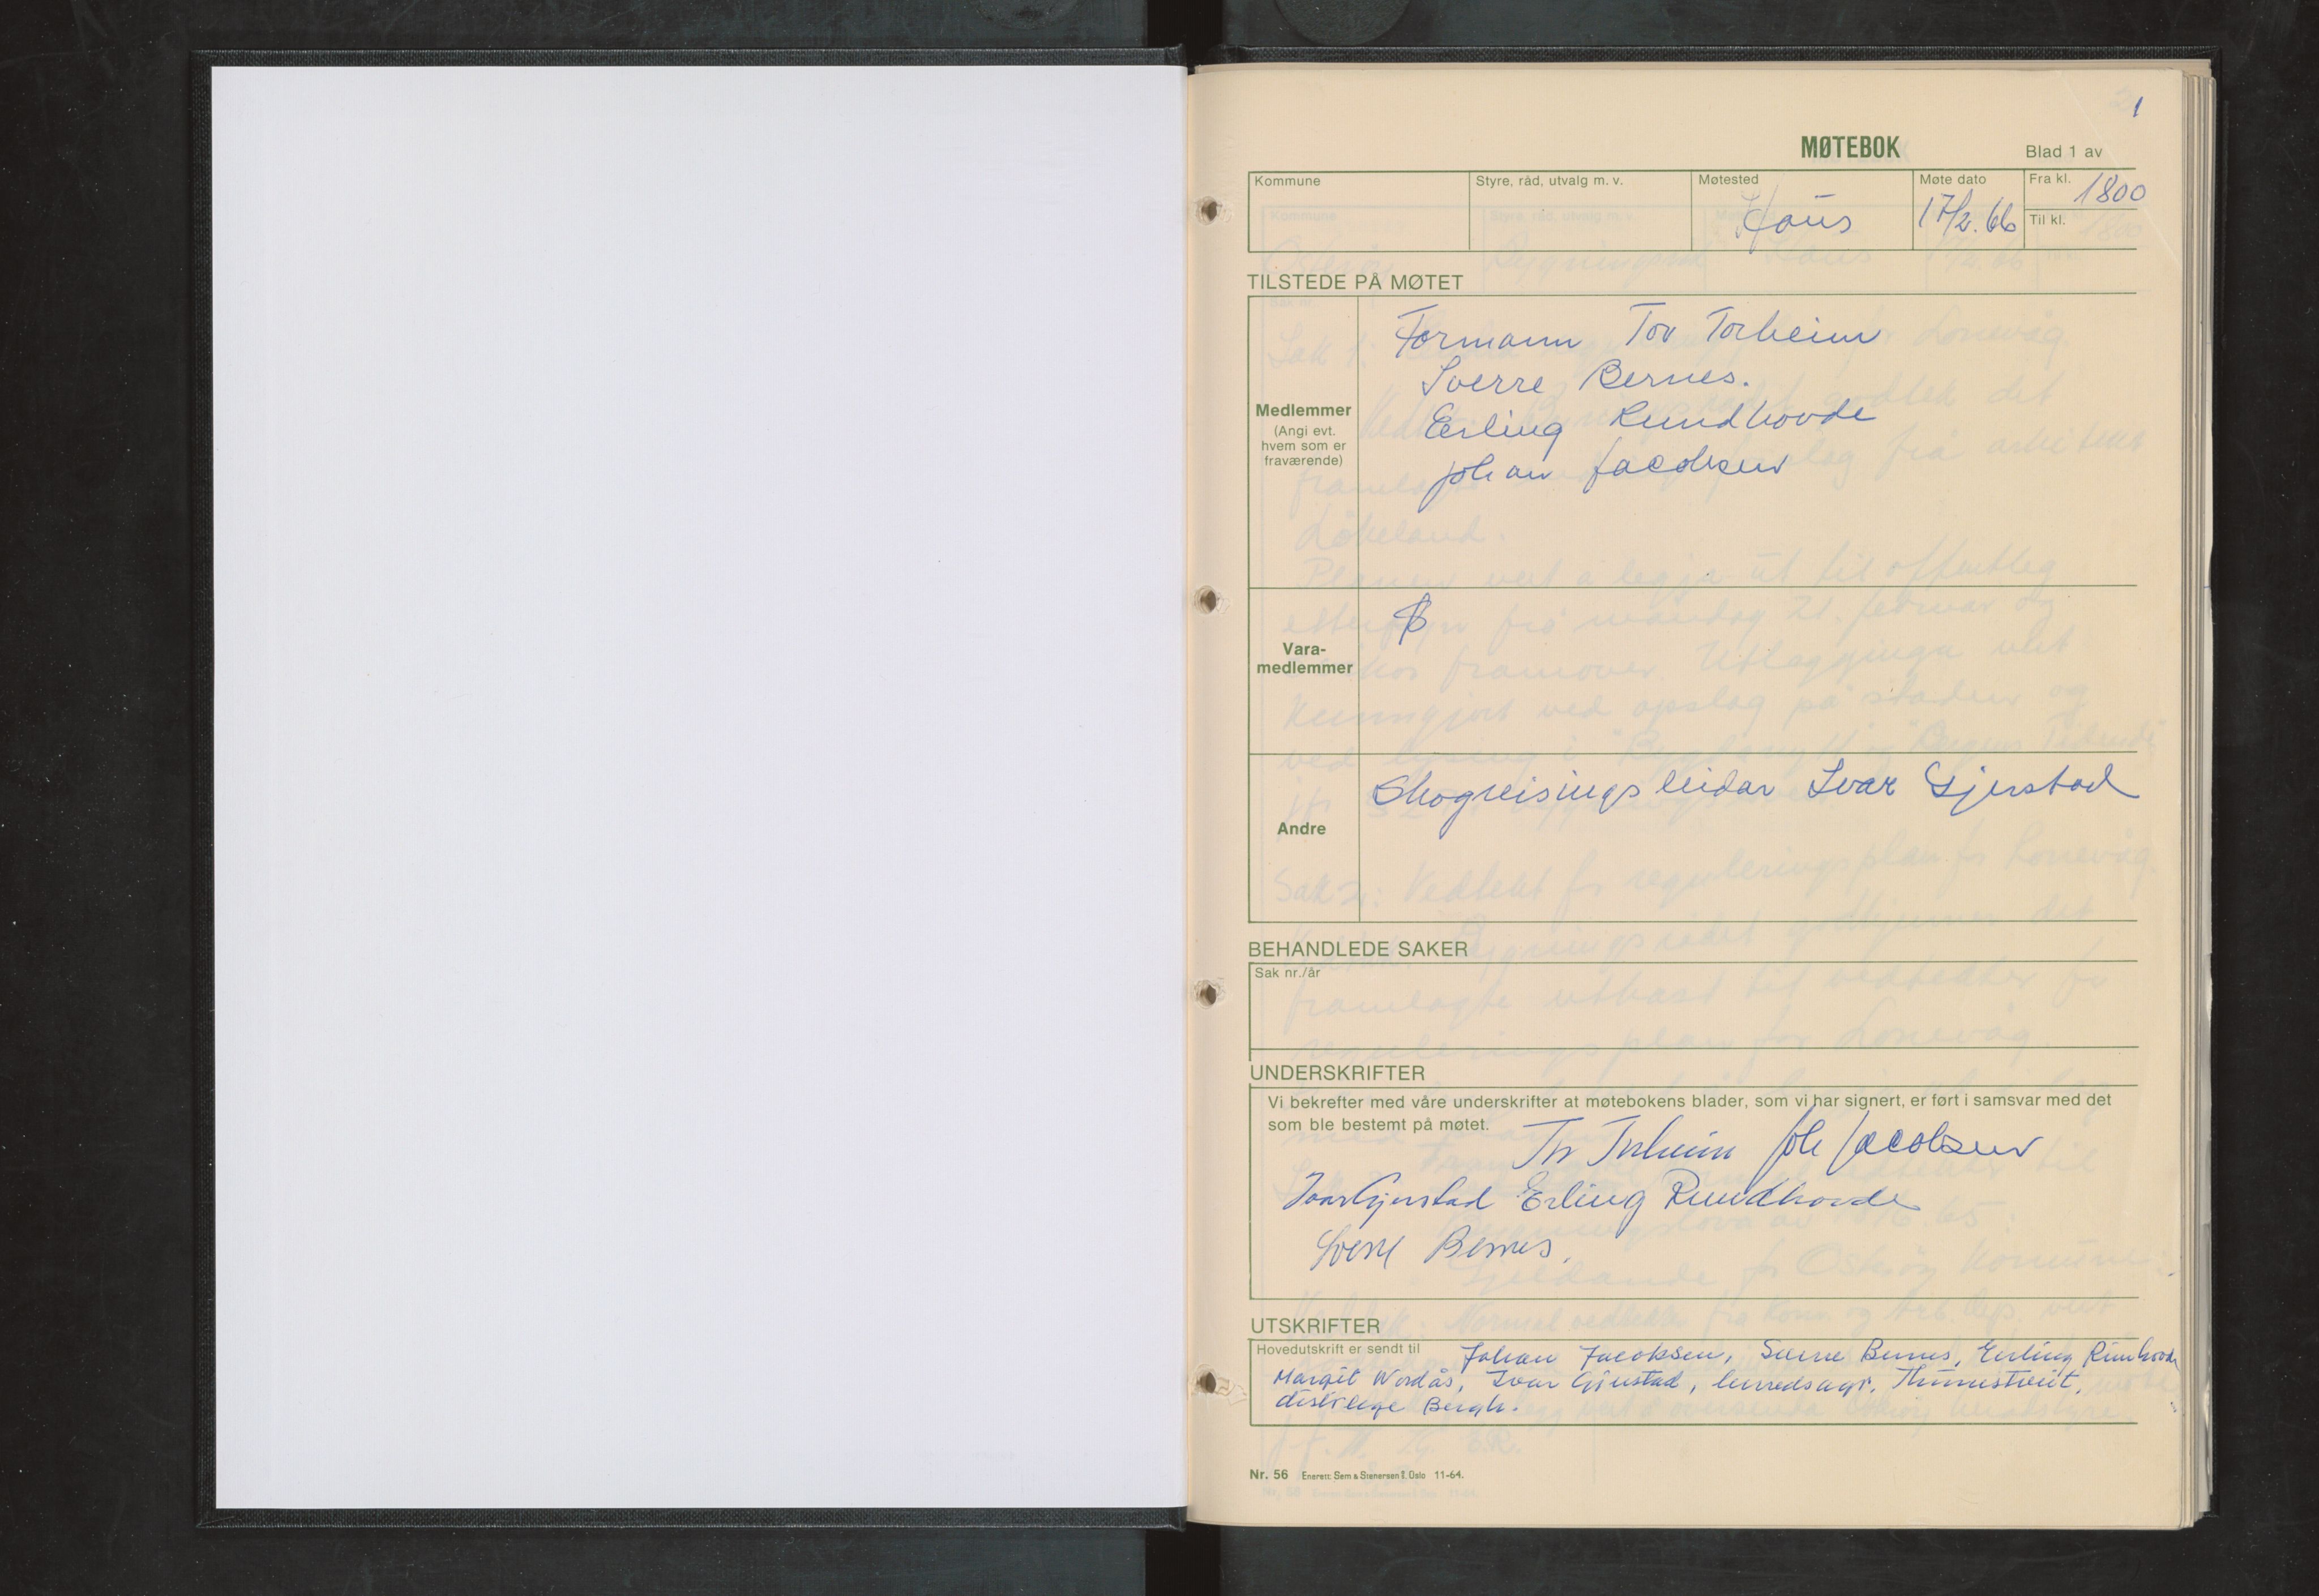 1
MØTEBOK
Blad 1 av
Kommune
Styre, råd, utvalg m. v.
Møtested
Haus
Møte dato
17/2.66
Fra kl.
1800
Til kl.
TILSTEDE PÅ MØTET
Medlemmer
(Angi evt.
hvem som er
fraværende)
Formann Tov Torheim
Sverre Bernes.
Erling Rundhovde
Johan Jacobsen
Vara-
medlemmer
Andre
Skogreisingsleidar Ivar Gjerstad
BEHANDLEDE SAKER
Sak nr./år
UNDERSKRIFTER
Vi bekrefter med våre underskrifter at møtebokens blader, som vi har signert, er ført i samsvar med det
som ble bestemt på møtet.
Tov Torheim Joh Jacobsen
Ivar Gjerstad Erling Rundhovde
Sverre Bernes.
UTSKRIFTER
Hovedutskrift er sendt til
Johan Jacobsen, Sverre Bernes, Erling Rundhovde
Margit Nordås, Ivar Gjerstad, herredsagr.
distr.lege Bergh.
Nr. 56 Enerett: Sem & Stenersen Oslo 11-64.